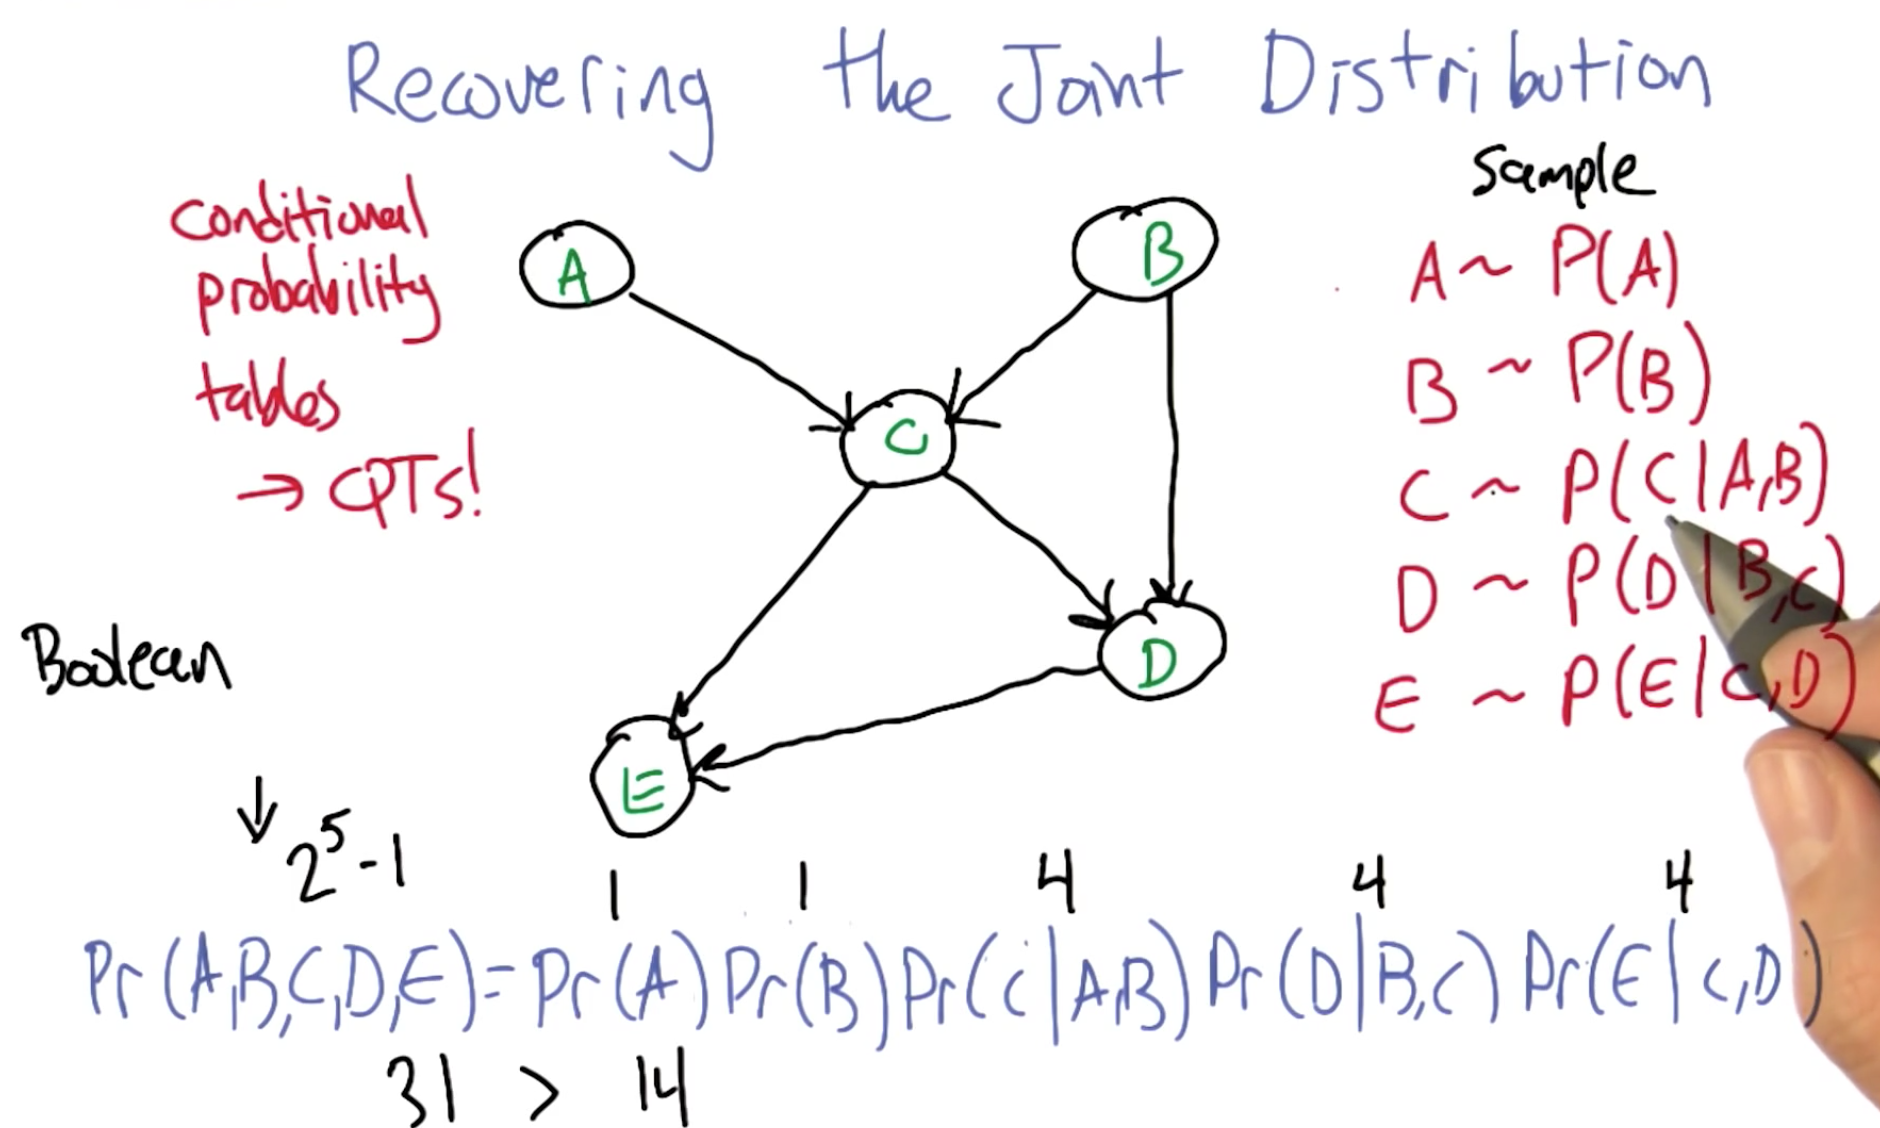 Recovering the Joint Distribution
Sample
Conditional
probability
tables
→ CPTs!
A
B
C
D
E
A ~ P(A)
B ~ P(B)
C ~ P(C|A,B)
D ~ P(D|B,C)
E ~ P(E|C,D)
Boolean
↓ 2⁵-1
1 1 4 4 4
Pr(A,B,C,D,E)=Pr(A)Pr(B)Pr(C|A,B)Pr(D|B,C)Pr(E|C,D)
31 > 14